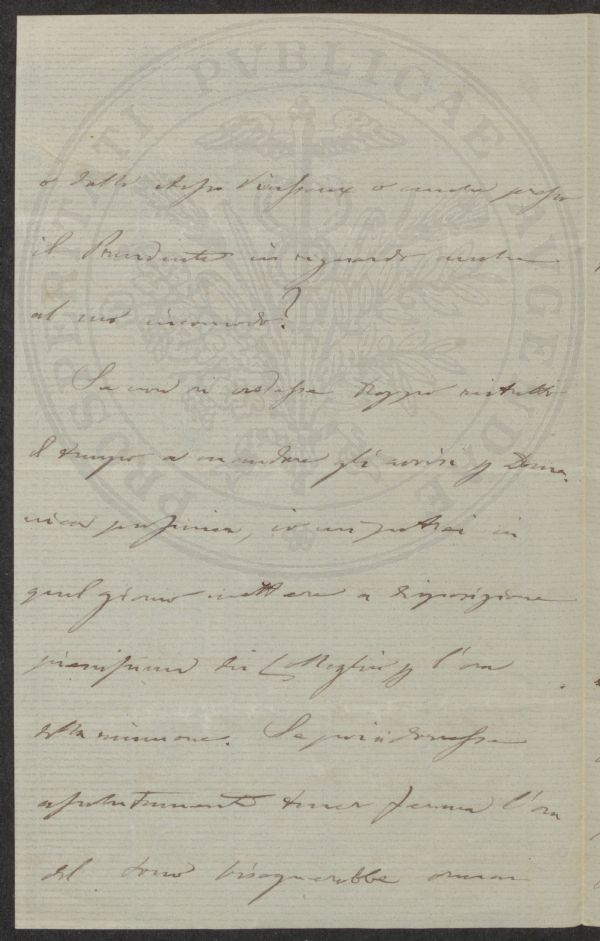 o dallo stesso Vieusseux o anche presso
il Presidente in riguardo anche
al suo incomodo?
Se non si credesse troppo ristretto
il tempo a mandare gli avvisi p Dome-
nica prossima, io mi potrei in
quel giorno mettere a disposizione
pienissima dei Colleghi p l'ora
della riunione. Se poi si dovesse
assolutamente tener ferma l'ora
del tocco bisognerebbe
PROSPERITATI PVBLICAE AVGENDAE